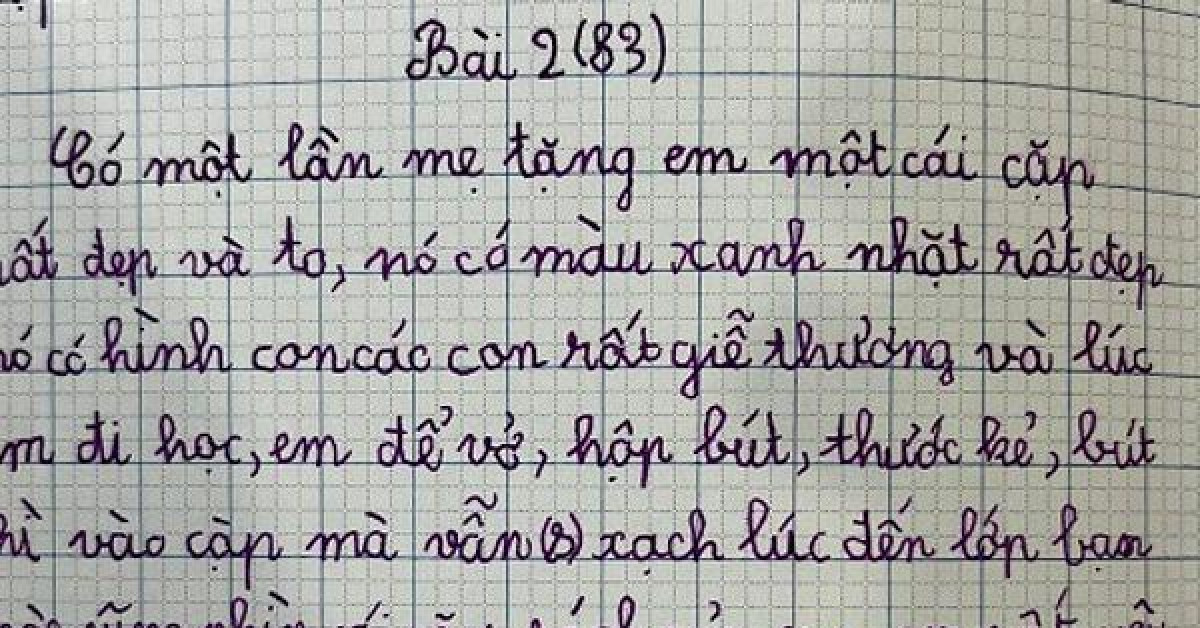 Bài 2 (83)
Có một lần mẹ tặng em một cái cặp
đẹp và to, nó có màu xanh nhặt rất đẹp
có hình con các con rất giễ thương và lúc
đi học, em để vở, hộp bút, thước kẻ, bút
vào cặp mà vẫn (s) xạch lúc đến lớp bạn